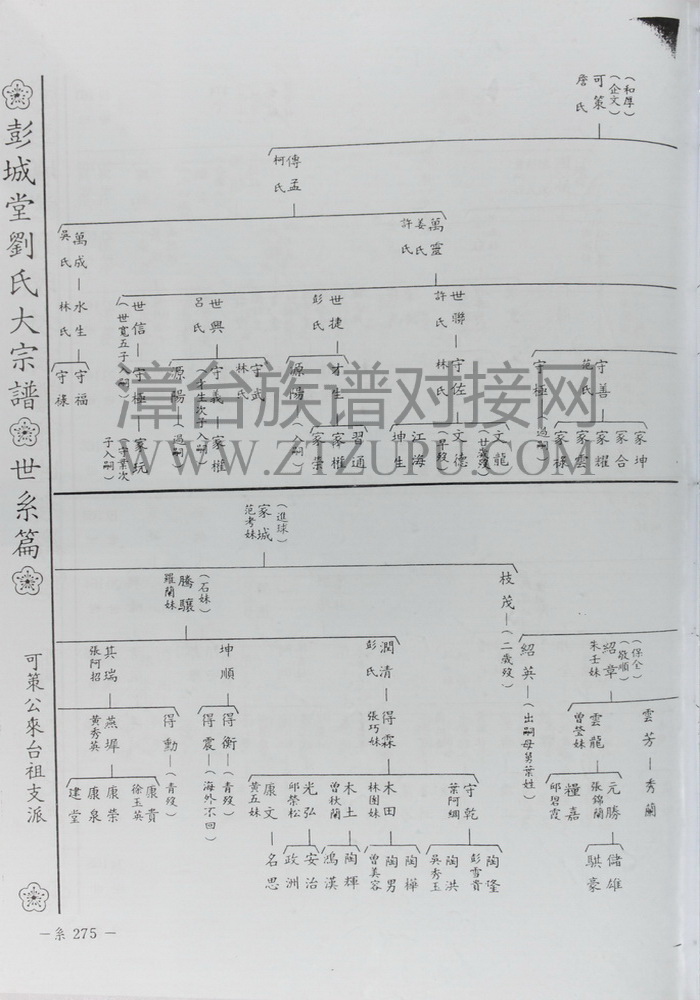 彭城堂劉氏大宗譜 世系篇
可策公來台祖支派
(和厚)
(企文)
可策
詹氏
傳孟
柯氏
萬靈
姜氏
許氏
萬成—水生
吳氏
林氏
守福
守祿
世聯
許氏
世捷
彭氏
世興
呂氏
世信—守極—家玩
(世寬五子入嗣)
(守業次子入嗣)
守善
范氏
守極
(過嗣)
守佐
林氏
才生
源陽
(入嗣)
守武
林氏
守義—家權
(才生次子入嗣)
源陽
(過嗣)
家坤
家合
家耀
家雲
家祿
文龍
(廿歲歿)
文德
(早歿)
江海
坤生
習通
家權
家崇
(進球)
家城
范考妹
枝茂—(二歲歿)
(石妹)
騰驤
羅蘭妹
(保全)
(敬順)
紹章
朱壬妹
紹英—(出嗣母舅葉姓)
潤清—得霖
彭氏
張巧妹
坤順
其瑞
張阿招
雲芳—秀蘭
雲龍
曾瑩妹
得衡—(青歿)
得震—(海外不回)
得勳—(青歿)
燕墀
黃秀英
元勝
張錦蘭
糧嘉
邱碧霞
守乾
葉阿綢
木田
林園妹
木土
曾枝蘭
光弘
邱榮松
康文—名思
黃五妹
康貴
徐玉英
康榮
康泉
建堂
儲雄
騏豪
陶隆
彭雪音
陶洪
吳秀玉
陶樺
陶男
曾美容
陶輝
鴻漢
安治
政洲
—系 275 —
漳台族谱对接网
WWW.ZTZUPU.COM